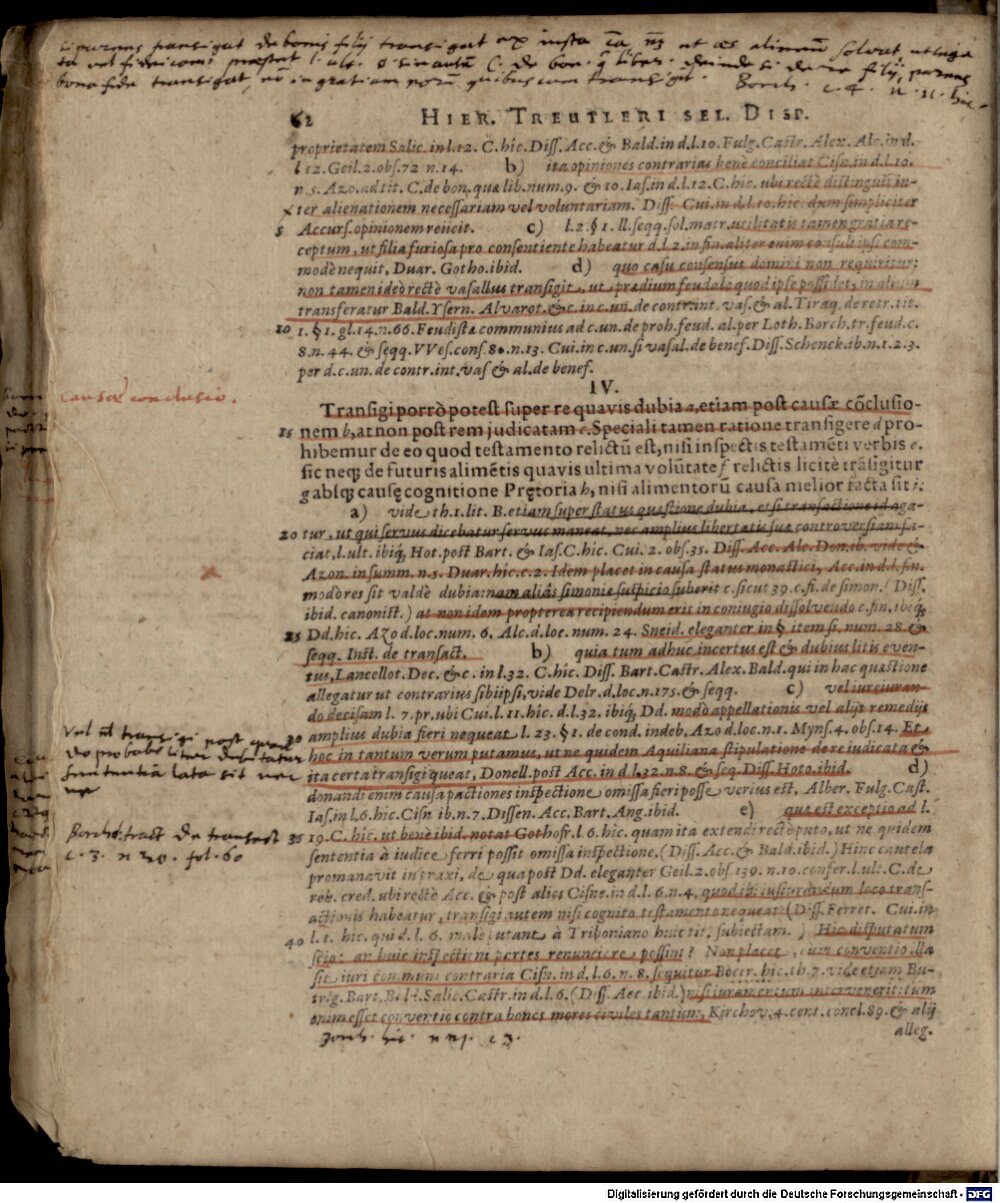 si parens transigat de bonis filij transigat ex iusta
bona fide transigat, non in gratiam
Borch. c. 4. n. 11. hic
62 HIER. TREUTLERI SEL. DISP.
proprietatem Salic. in l. 12. C. hîc. Diss. Acc. & Bald. in d. l. 10. Fulg. Castr. Alex. Alc. in d.
l. 12. Geil. 2. obs. 72 n. 14. b) ita opiniones contrarias benè conciliat Cisn. in d. l. 10.
n. 5. Azo. ad tit. C. de bon. quæ lib. num. 9. & 10. Ias. in d. l. 12. C. hic. ubi rectè distinguit in-
ter alienationem necessariam vel voluntariam. Diss. Cui. in d. l. 10. hic. dum simpliciter
5 Accurs. opinionem reiicit. c) l. 2. § 1. ll. seqq. sol. matr. utilitatis tamen gratia re-
ceptum, ut filia furiosa pro consentiente habeatur d. l. 2. in fin. aliter enim consuli ipsi com-
modè nequit, Duar. Gotho. ibid. d) quo casu consensus domini non requiritur:
non tamen ideò rectè vasallus transigit, ut prædium feudale quod ipse possidet, in alium
transferatur Bald. Ysern. Alvarot. &c. in c. un. de contr. int. vas. & al. Tiraq. de retr. tit.
10 1. § 1. gl. 14. n. 66. Feudistæ communius ad c. un. de proh. feud. al. per Loth. Borch. tr. feud. c.
8. n. 44. & seqq. VVes. cons. 80. n. 13. Cui. in c. un. si vasal. de benef. Diss. Schenck. ib. n. 1. 2. 3.
per d. c. un. de contr. int. vas & al. de benef.
IV.
Causæ conclusio.
Transigi porrò potest super re quavis dubia a, etiam post causæ cõclusio-
15 nem b, at non post rem judicatam c. Speciali tamen ratione transigere d pro-
hibemur de eo quod testamento relictũ est, nisi inspectis testamẽti verbis e.
sic neq; de futuris alimẽtis quavis ultima volũtate f relictis licitè trãsigitur
g absq; causę cognitione Prętoria h, nisi alimentorũ causa melior facta sit i:
a) vide th. 1. lit. B. etiam super status quæstione dubia, etsi transactione id aga-
20 tur, ut qui servus dicebatur servus maneat, nec amplius libertatis suæ controversiam fa-
ciat, l. ult. ibiq; Hot. post Bart. & Ias. C. hic. Cui. 2. obs. 35. Diss. Acc. Alc. Don. ib. vide &
Azon. in summ. n. 5. Duar. hic. c. 2. Idem placet in causa status monastici, Acc. in d. l. fin.
modò res sit valdè dubia: nam aliàs simoniæ suspicio suberit c. sicut 39. c. fi. de simon. (Diss.
ibid. canonist.) at non idem propterea recipiendum erit in coniugio dissolvendo c. fin. ibiq;
25 Dd. hic. Azo d. loc. num. 6. Alc. d. loc. num. 24. Sneid. eleganter in § item si. num. 28. &
seqq. Inst. de transact. b) quia tum adhuc incertus est & dubius litis even-
tus, Lancellot. Dec. &c. in l. 32. C. hîc. Diss. Bart. Castr. Alex. Bald. qui in hac quæstione
allegatur ut contrarius sibiipsi, vide Delr. d. loc. n. 175. & seqq. c) vel iureiuran-
do decisam l. 7. pr. ubi Cui. l. 11. hîc. d. l. 32. ibiq; Dd. modò appellationis vel alijs remedijs
30 amplius dubia fieri nequeat l. 23. § 1. de cond. indeb. Azo d. loc. n. 1. Myns. 4. obs. 14. Et
hoc in tantum verum putamus, ut ne quidem Aquiliana stipulatione de re iudicata &
ita certa transigi queat, Donell. post Acc. in d. l. 32. n. 8. & seq. Diss. Hoto. ibid. d)
donandi enim causa pactiones inspectione omissa fieri posse verius est, Alber. Fulg. Cast.
Ias. in l. 6. hîc. Cisn ib. n. 7. Dissen. Acc. Bart. Ang. ibid. e) quæ est exceptio ad l.
35 19. C. hic. ut benè ibid. notat Gothofr. l. 6. hic. quam ita extendi rectè puto, ut ne quidem
sententia à iudice ferri possit omissa inspectione. (Diss. Acc. & Bald. ibid.) Hinc cautela
promanavit in praxi, de qua post Dd. eleganter Geil. 2. obs. 139. n. 10. confer. l. ult. C. de
reb. cred. ubi rectè Acc. & post alios Cisne. in d. l. 6. n. 4. quod ibi iusiurandum loco trans-
actionis habeatur, transigi autem nisi cognito testamento nequeat (Diss. Ferret. Cui. in
40 l. 1. hic. qui d. l. 6. malè putant à Triboniano huic tit. subiectam.) Hic disputatum
scio: an huic inspectioni partes renunciare possint? Non placet, cum conventio illa
sit iuri communi contraria Cisn. in d. l. 6. n. 8. sequitur Bocer. hic. th. 7. vide etiam Bu-
trig. Bart. Bald. Salic. Castr. in d. l. 6. (Diss. Acc. ibid.) nisi iuramentum intervenerit: tum
enim esset conventio contra bonos mores civiles tantum, Kirchov. 4. cent. concl. 89. & alij
alleg.
Vel ut transigi post quam
sententia lata sit
Borcholt. tract. de transact.
c. 3. n 20. fol. 60